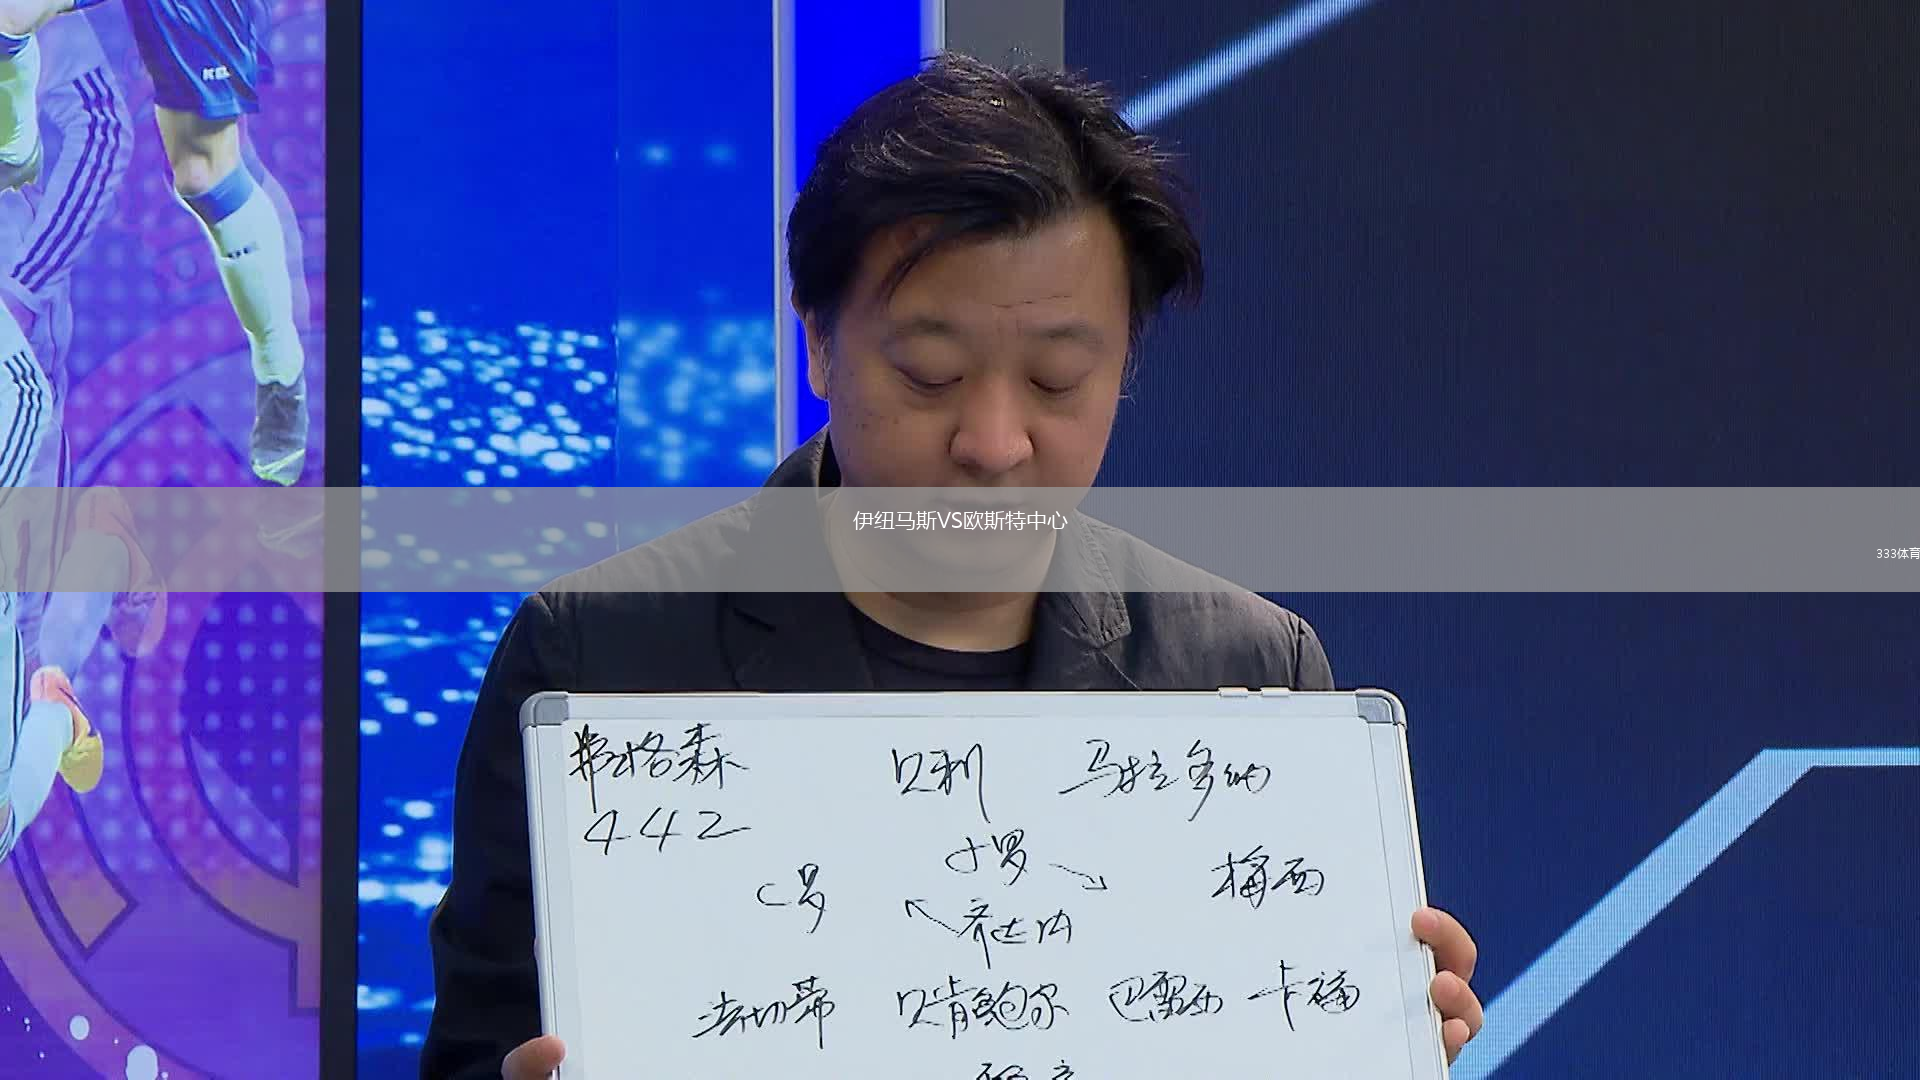 KG
伊纽马斯VS欧斯特中心
333体育
弗格森 贝利 马拉多纳
442
小罗
C罗 梅西
齐达内
法切蒂 贝肯鲍尔 巴雷西 卡福